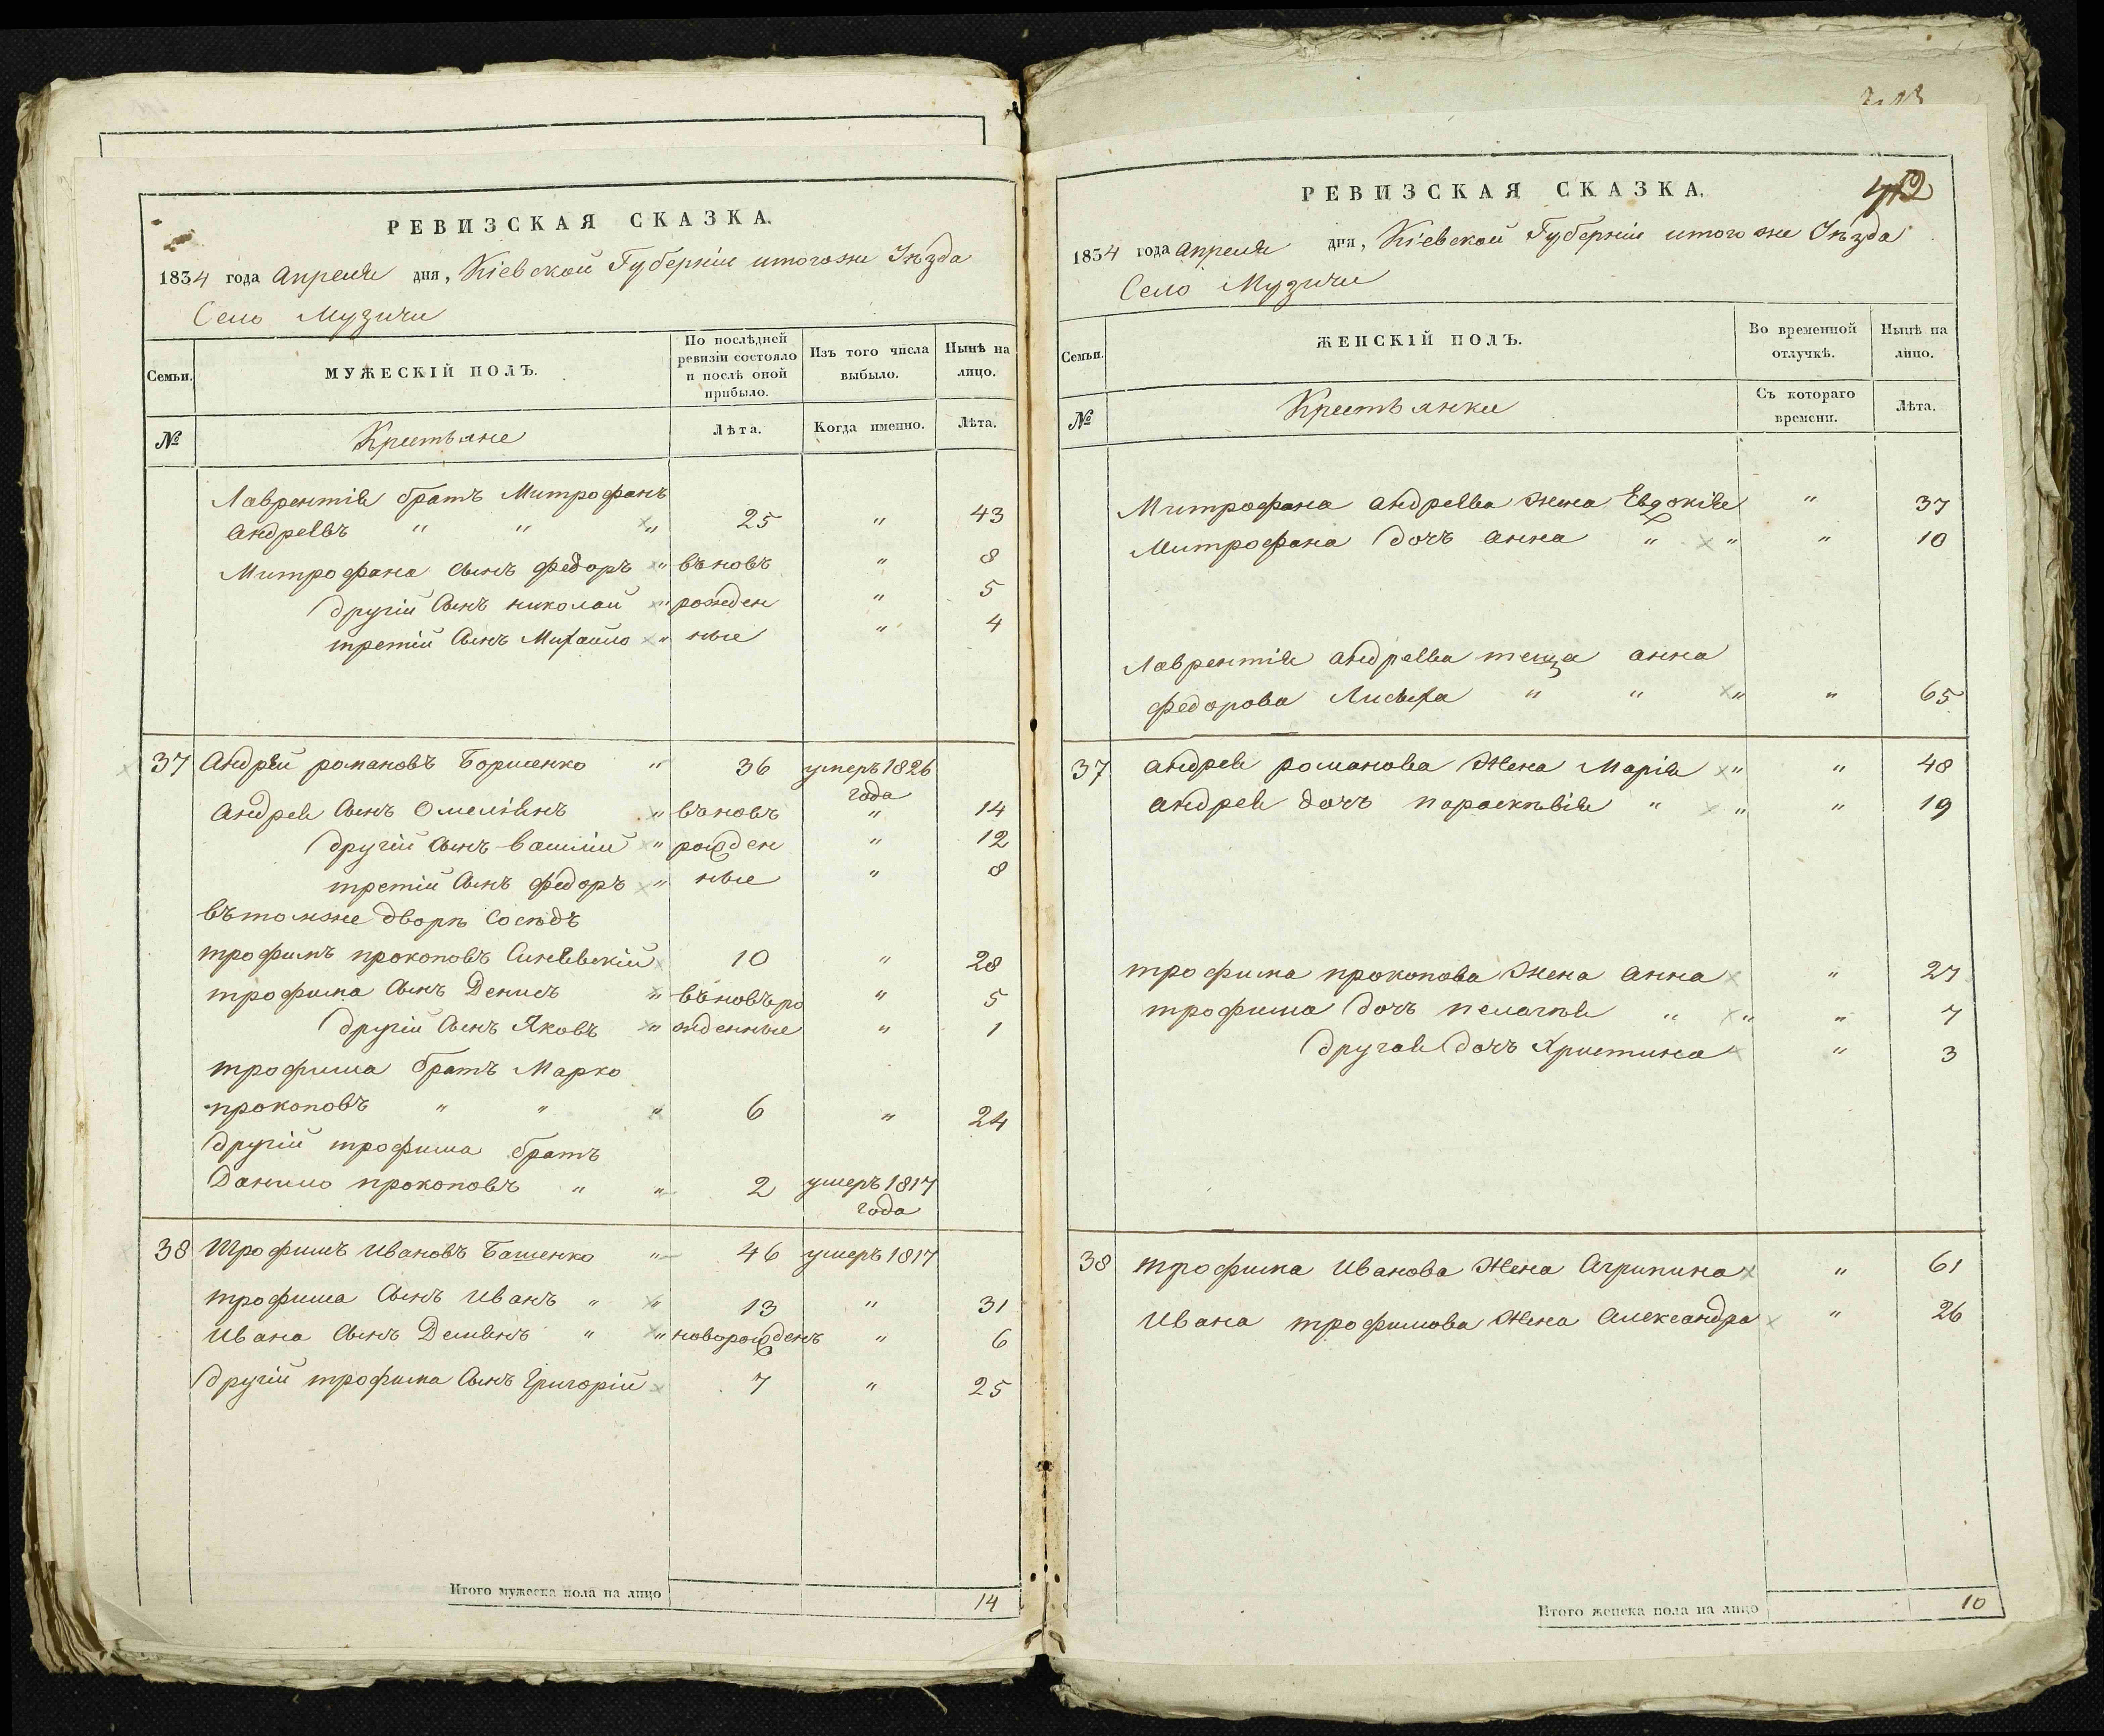 РЕВИЗСКАЯ СКАЗКА.
1834 года Апреля дня, Кіевской Губерніи итогоже Уѣзда
Село Музичи
Семьи. МУЖЕСКІЙ ПОЛЪ. По послѣдней ревизіи состояло и послѣ оной прибыло. Изъ того числа выбыло. Нынѣ на лицо.
№ Крестьяне Лѣта. Когда именно. Лѣта.
Лаврентія братъ Митрофанъ
андреевъ " " " 25 " 43
Митрофана сынъ федоръ " въновъ " 8
другій сынъ николай " рожден " 5
третій сынъ Михайло " ные " 4
37 Андрей романовъ Борщенко " 36 умеръ 1826
года
андрея сынъ Омеліянъ " въновъ " 14
другій сынъ василій " рожден " 12
третій сынъ федоръ " ные " 8
вътомже дворѣ сосѣдъ
трофимъ прокоповъ Синѣвскій 10 " 28
трофима сынъ Денисъ " въновъро " 5
другій сынъ Яковъ " жденные " 1
трофима братъ Марко
прокоповъ " " " 6 " 24
другій трофима братъ
Данило прокоповъ " " 2 умеръ 1817
года
38 Трофимъ ивановъ Башенко " 46 умеръ 1817
трофима сынъ иванъ " " 13 " 31
ивана сынъ Демянъ " " новорожденъ " 6
другій трофима сынъ Григорій 7 " 25
Итого мужеска пола на лицо 14
РЕВИЗСКАЯ СКАЗКА.
1834 года апреля дня, Кіевской Губерніи итого же Уѣзда
Село Музичи
Семьи. ЖЕНСКІЙ ПОЛЪ. Во временной отлучкѣ. Нынѣ на лицо.
№ Крестьянки Съ котораго времени. Лѣта.
Митрофана андреева жена Евдокія " 37
Митрофана дочъ анна " " " 10
Лаврентія андреева теща анна
федорова Лисыха " " " " 65
37 андрея романова жена Марія " " 48
андрея дочъ параскѣвія " " " 19
трофима прокопова жена анна " 27
трофима дочъ пелагѣя " " " 7
другая дочъ Христина " 3
38 трофима иванова жена Агрипина " 61
ивана трофимова жена Александра " 26
Итого женска пола на лицо 10